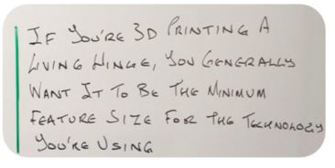 If You're 3D Printing A
Living Hinge, You Generally
Want It To Be The Minimum
Feature Size For The Technology
You're Using